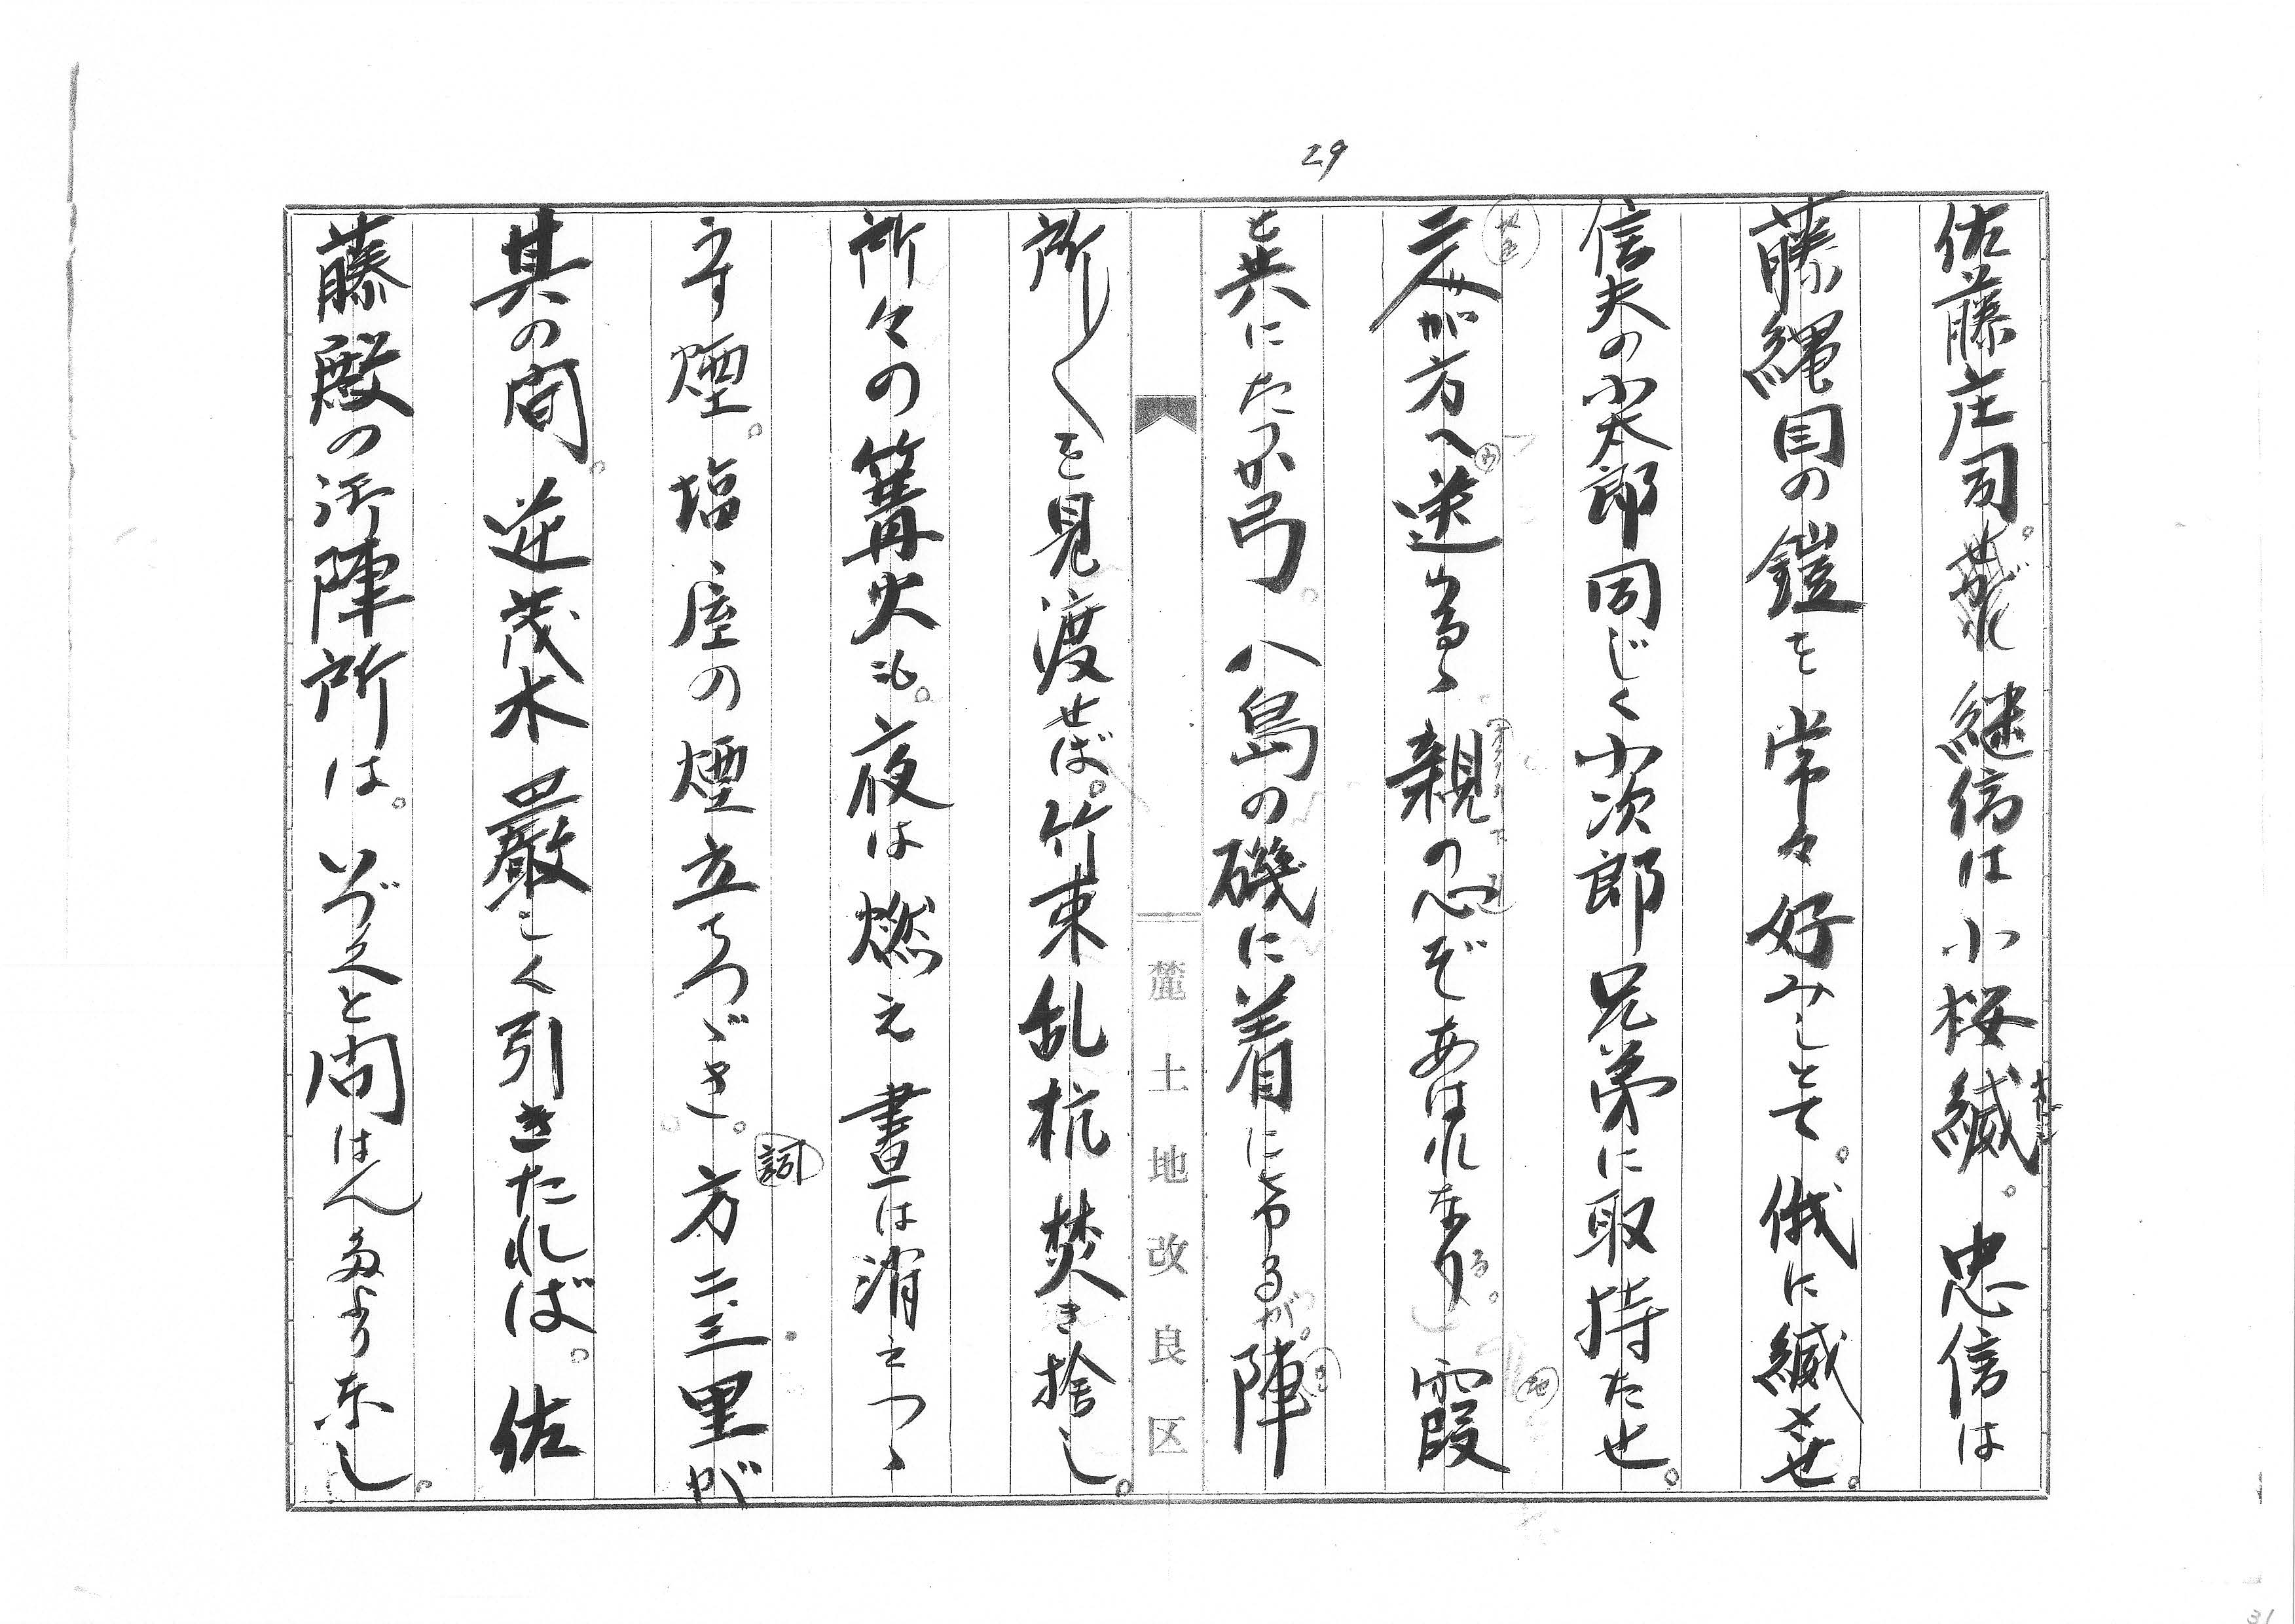 29
佐藤庄司。継信は小桜縅。忠信は
藤縄目の鎧を常々好みしとて。俄に縅させ。
信夫の小太郎同じく小次郎兄弟に取持たせ。
二人が方へ送らるゝ親の心ぞあはれなり。霞
と共にたつか弓。八島の磯に着にけるが。陣
所〳〵を見渡せば。竹束乱杭焚き捨し。
麓土地改良区
所々の篝火も。夜は燃え昼は消えつゝ
うす煙。塩屋の煙立ちつゞき。方二三里が
詞
其の間。逆茂木厳しく引きたれば。佐
藤殿の御陣所は。いづくと問はんたよりなし。